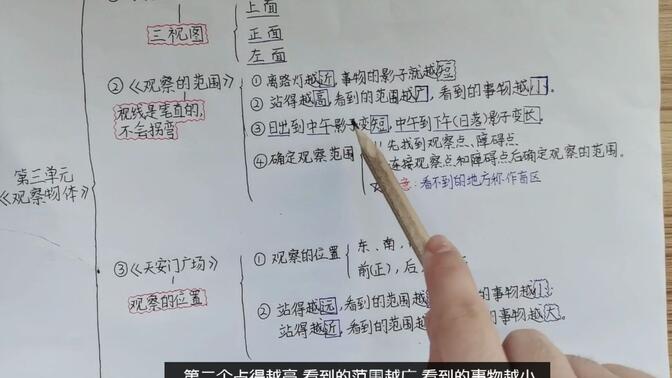 上面
三视图
正面
左面
②《观察的范围》
视线是笔直的,
不会拐弯
①离路灯越近,事物的影子就越短
②站得越高,看到的范围越广,看到的事物越小。
③日出到中午影子变短,中午到下午(日落)影子变长。
④确定观察范围
先找到观察点、障碍点
连接观察点和障碍点后确定观察的范围。
意:看不到的地方称作盲区
第三单元
《观察物体》
③《天安门广场》
观察的位置
①观察的位置
东、南、
前(正),后
②站得越远,看到的范围越
的事物越小;
站得越近,看到的范围越
的事物越大。
第二个占得越高 看到的范围越广 看到的事物越小